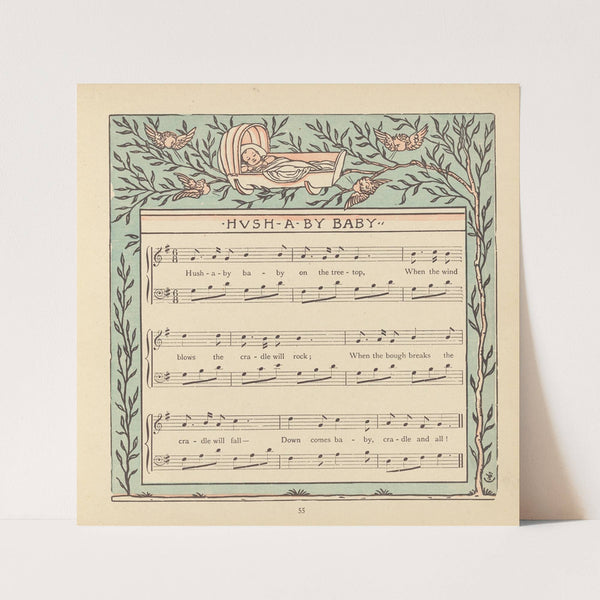 ·HVSH-A-BY BABY··
Hush - a - by ba - by on the tree - top, When the wind
blows the cra - dle will rock; When the bough breaks the
cra - dle will fall— Down comes ba - by, cra - dle and all!
55